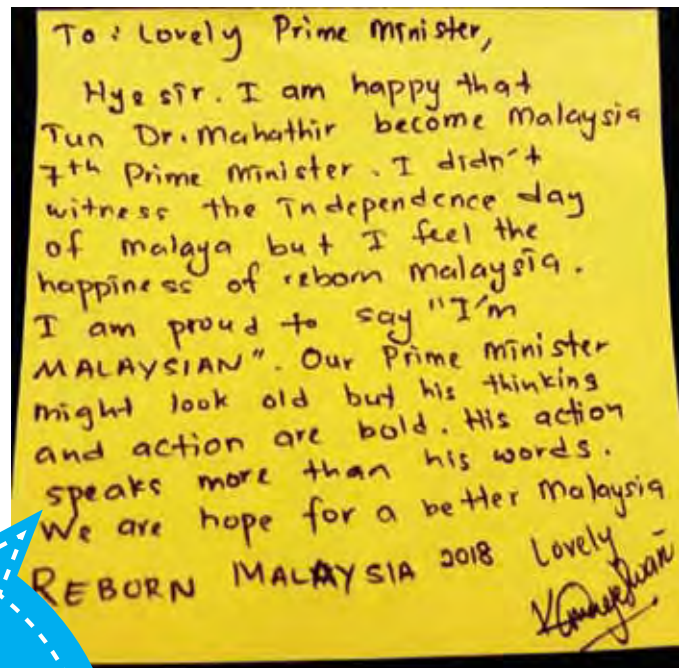 To: Lovely Prime Minister,
Hye sir. I am happy that
Tun Dr. Mahathir become Malaysia
7th Prime Minister. I didn't
witness the independence day
of malaya but I feel the
happiness of reborn malaysia.
I am proud to say "I'm
MALAYSIAN". Our Prime Minister
might look old but his thinking
and action are bold. His action
speaks more than his words.
We are hope for a better Malaysia
REBORN MALAYSIA 2018 Lovely